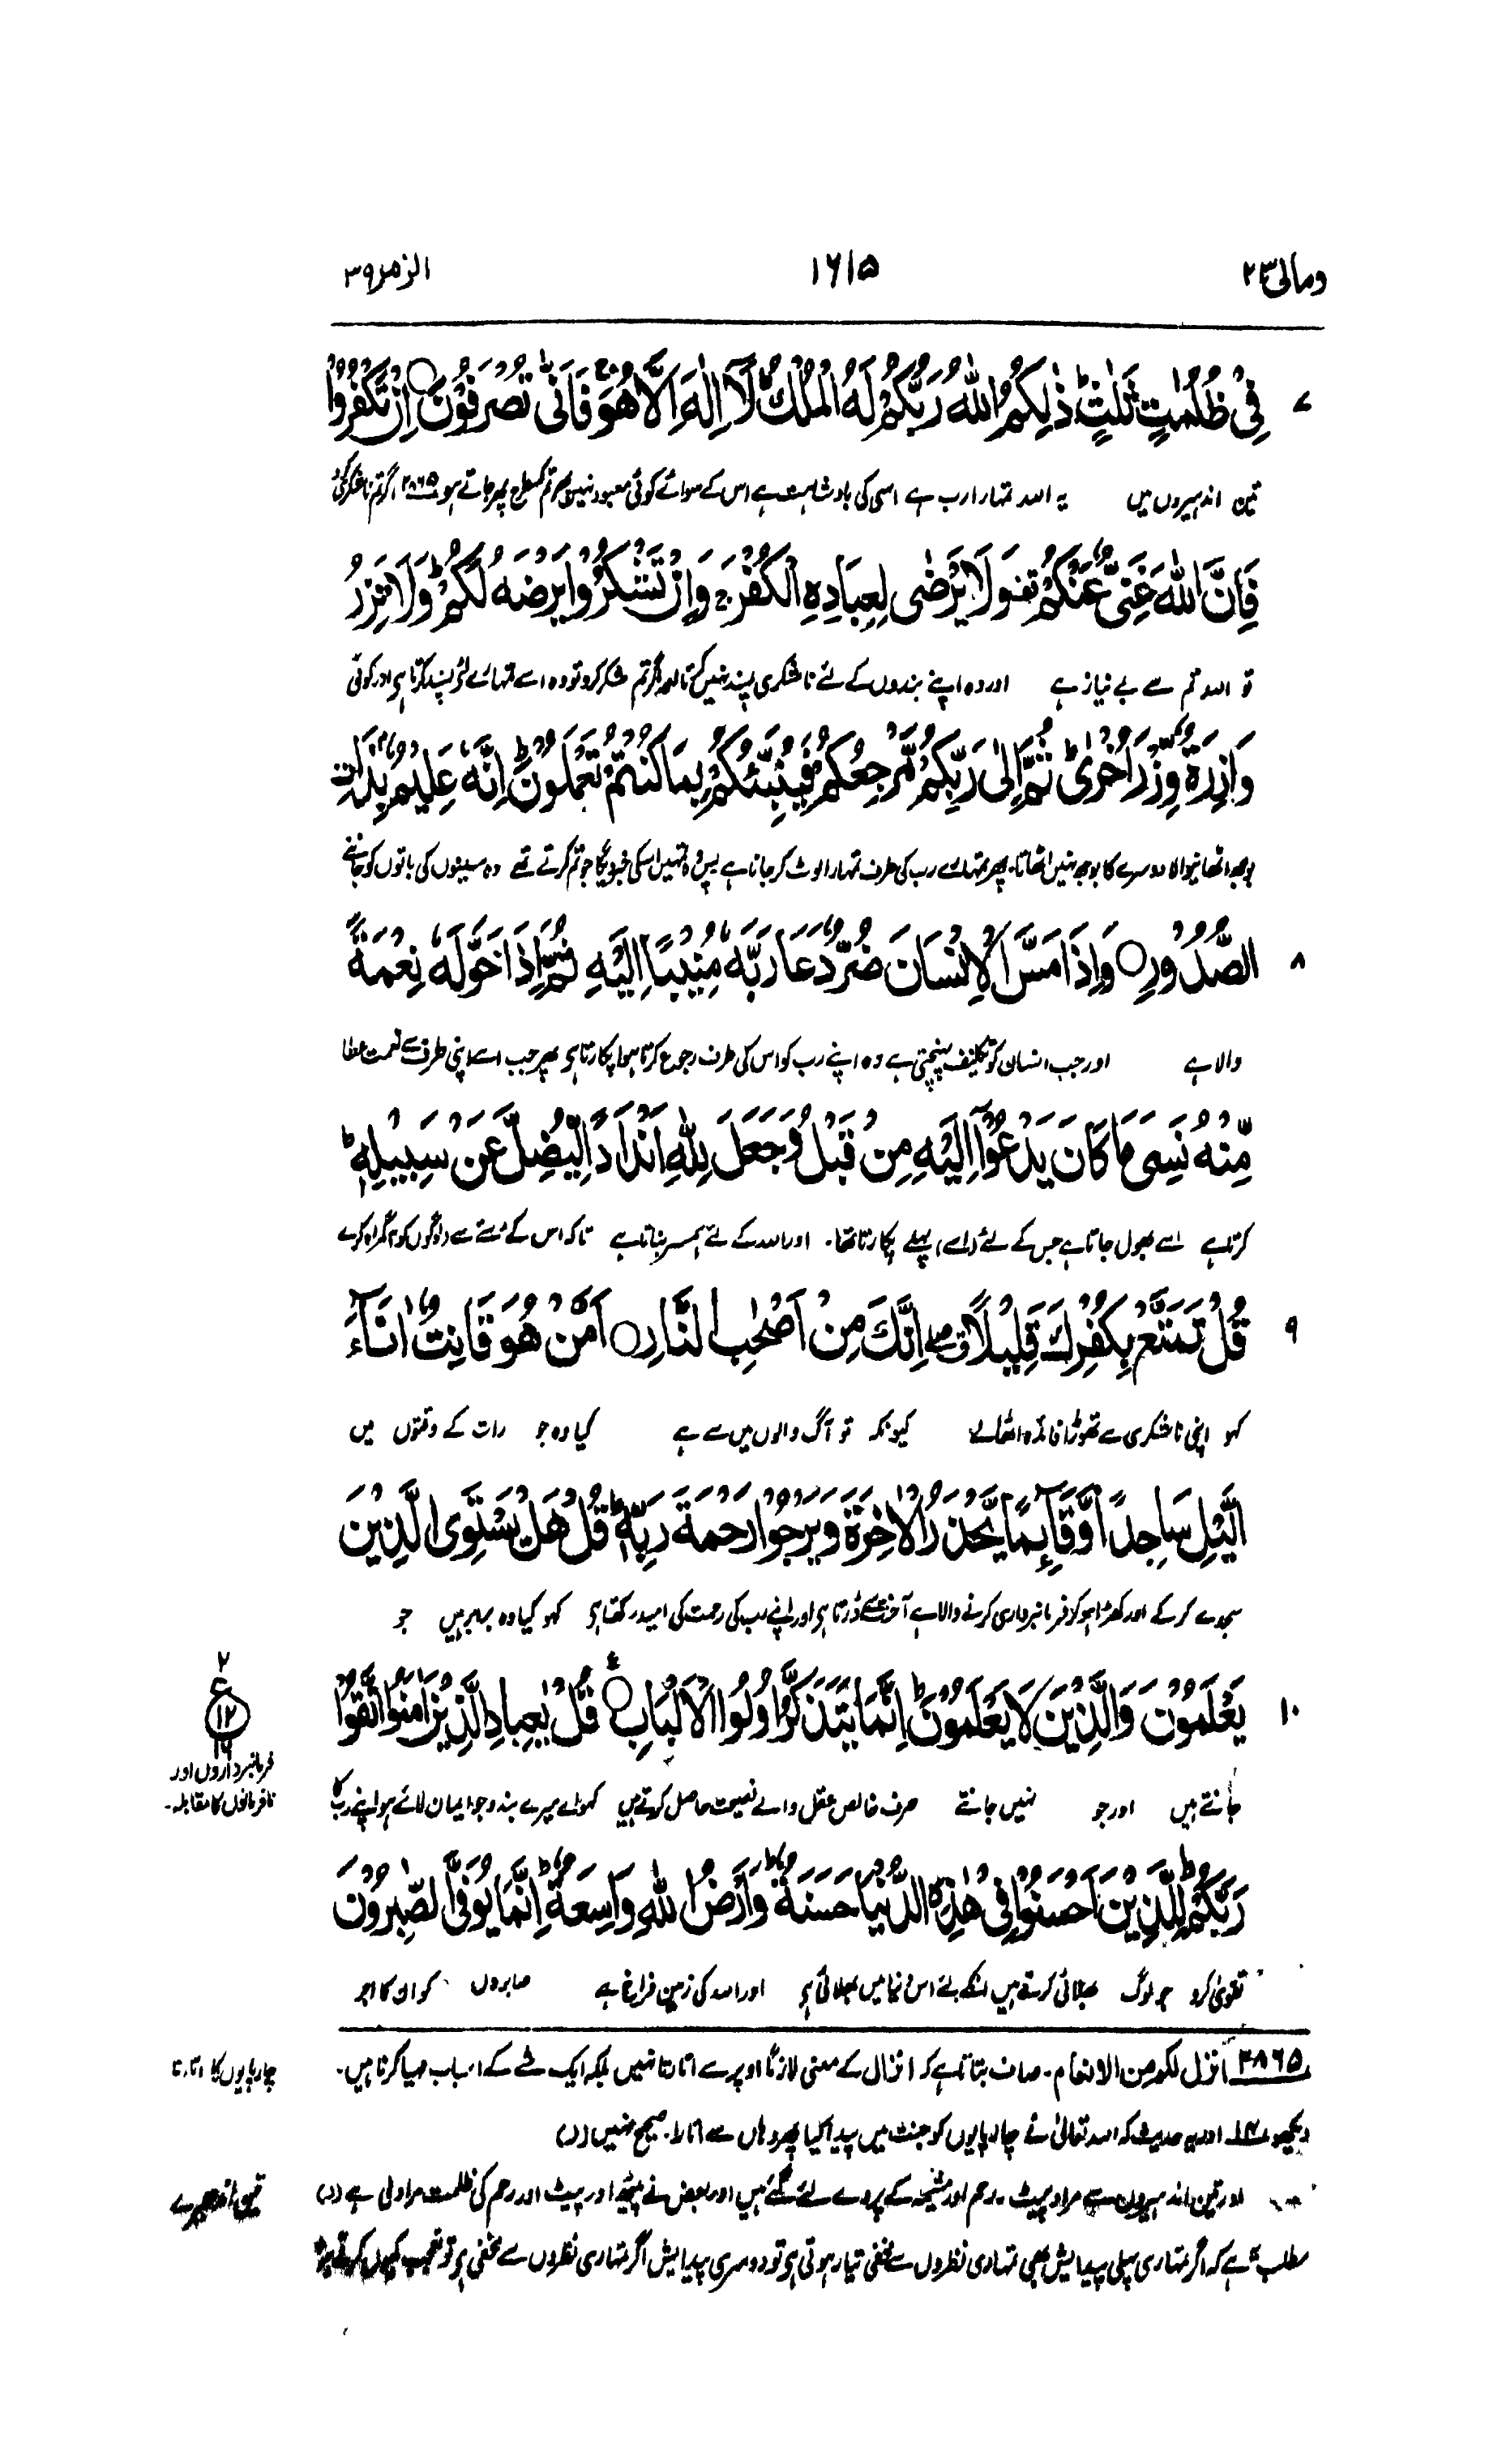 ومالی ۲۳
۱۶۱۵
الزمر ۳۹
۷
فِیْ ظُلُمٰتٍ ثَلٰثٍ ؕ ذٰلِكُمُ اللّٰهُ رَبُّكُمْ لَهُ الْمُلْكُ ؕ لَاۤ اِلٰهَ اِلَّا هُوَ ۚ فَاَنّٰی تُصْرَفُوْنَ ○ اِنْ تَكْفُرُوْا
تین اندھیروں میں یہ اللہ تمہارا رب ہے اسی کی بادشاہت ہے اس کے سوائے کوئی معبود نہیں پھر تم کسطرح پھر جاتے ہو ۲۸۶۵ اگر تم ناشکری کرو
فَاِنَّ اللّٰهَ غَنِیٌّ عَنْكُمْ ۫ وَلَا یَرْضٰی لِعِبَادِهِ الْكُفْرَ ۚ وَاِنْ تَشْكُرُوْا یَرْضَهُ لَكُمْ ؕ وَلَا تَزِرُ
تو اللہ تم سے بے نیاز ہے اور وہ اپنے بندوں کے لئے ناشکری پسند نہیں کرتا اور اگر تم شکر کرو تو وہ اسے تمہارے لئے پسند کرتا ہی اور کوئی
وَازِرَةٌ وِّزْرَ اُخْرٰی ؕ ثُمَّ اِلٰی رَبِّكُمْ مَّرْجِعُكُمْ فَیُنَبِّئُكُمْ بِمَا كُنْتُمْ تَعْمَلُوْنَ ؕ اِنَّهٗ عَلِیْمٌۢ بِذَاتِ
بوجھ اٹھانیوالا دوسرے کا بوجھ نہیں اٹھاتا۔ پھر تمہارے رب کی طرف تمہارا لوٹ کر جانا ہے پس وہ تمہیں اسکی خبر دیگا جو تم کرتے تھے وہ سینوں کی باتوں کو جاننے
۸
الصُّدُوْرِ ○ وَاِذَا مَسَّ الْاِنْسَانَ ضُرٌّ دَعَا رَبَّهٗ مُنِیْبًا اِلَیْهِ ثُمَّ اِذَا خَوَّلَهٗ نِعْمَةً
والا ہے اور جب انسان کو تکلیف پہنچتی ہے وہ اپنے رب کو اس کی طرف رجوع کرتا ہوا پکارتا ہی پھر جب اسے اپنی طرف سے نعمت عطا
مِّنْهُ نَسِیَ مَا كَانَ یَدْعُوْۤا اِلَیْهِ مِنْ قَبْلُ وَجَعَلَ لِلّٰهِ اَنْدَادًا لِّیُضِلَّ عَنْ سَبِیْلِهٖ ؕ
کرتا ہے اسے بھول جاتا ہے جس کے لئے (اسے) پہلے پکارتا تھا۔ اور اللہ کے لئے ہمسر بناتا ہے تاکہ اس کے رستے سے (لوگوں کو) گمراہ کرے
۹
قُلْ تَمَتَّعْ بِكُفْرِكَ قَلِیْلًا ۖ اِنَّكَ مِنْ اَصْحٰبِ النَّارِ ○ اَمَّنْ هُوَ قَانِتٌ اٰنَآءَ
کہو اپنی ناشکری سے تھوڑا فائدہ اٹھالے کیونکہ تو آگ والوں میں سے ہے کیا وہ جو رات کے وقتوں میں
الَّیْلِ سَاجِدًا وَّقَآئِمًا یَّحْذَرُ الْاٰخِرَةَ وَیَرْجُوْا رَحْمَةَ رَبِّهٖ ؕ قُلْ هَلْ یَسْتَوِی الَّذِیْنَ
سجدے کر کے اور کھڑا ہو کر فرمانبرداری کرنے والا ہے آخرت سے ڈرتا ہی اور اپنے رب کی رحمت کی امید رکھتا ہی کہو کیا وہ برابر ہیں جو
۱۰
یَعْلَمُوْنَ وَالَّذِیْنَ لَا یَعْلَمُوْنَ ؕ اِنَّمَا یَتَذَكَّرُ اُولُوا الْاَلْبَابِ ○ قُلْ یٰعِبَادِ الَّذِیْنَ اٰمَنُوا اتَّقُوْا
۲
ع
۱۲
۱۶
فرمانبرداروں اور
نافرمانوں کا مقابلہ۔
جانتے ہیں اور جو نہیں جانتے صرف خالص عقل والے نصیحت حاصل کرتے ہیں کہو اے میرے بندو جو ایمان لائے ہو اپنے رب کا
رَبَّكُمْ ؕ لِلَّذِیْنَ اَحْسَنُوْا فِیْ هٰذِهِ الدُّنْیَا حَسَنَةٌ ؕ وَاَرْضُ اللّٰهِ وَاسِعَةٌ ؕ اِنَّمَا یُوَفَّی الصّٰبِرُوْنَ
تقویٰ کرو جو لوگ بھلائی کرتے ہیں انکے لئے اس دنیا میں بھلائی ہی اور اللہ کی زمین فراخ ہے صابروں کو ان کا اجر
۲۸۶۵ انزل لکم من الانعام۔ صاف بتاتا ہے کہ انزال کے معنی لازمًا اوپر سے اتارنا نہیں بلکہ ایک شے کے اسباب مہیا کرنا ہیں۔
چارپایوں کا اتارنا
دیکھو اور یہ حدیث کہ اللہ تعالیٰ نے چارپایوں کو جنت میں پیدا کیا پھر وہاں سے اتارا۔ صحیح نہیں (ر)
اور تین اندھیروں سے مراد پیٹ۔ رحم اور مشیمہ کے پردے لئے گئے ہیں اور بعض نے پیٹھ اور پیٹ اور رحم کی ظلمت مراد لی ہے (ر)
تین اندھیرے
مطلب یہ ہے کہ اگر تمہاری پہلی پیدایش بھی تمہاری نظروں سے مخفی تیار ہوتی ہی تو دوسری پیدایش اگر تمہاری نظروں سے مخفی ہو تو تعجب کیوں کرتے ہو